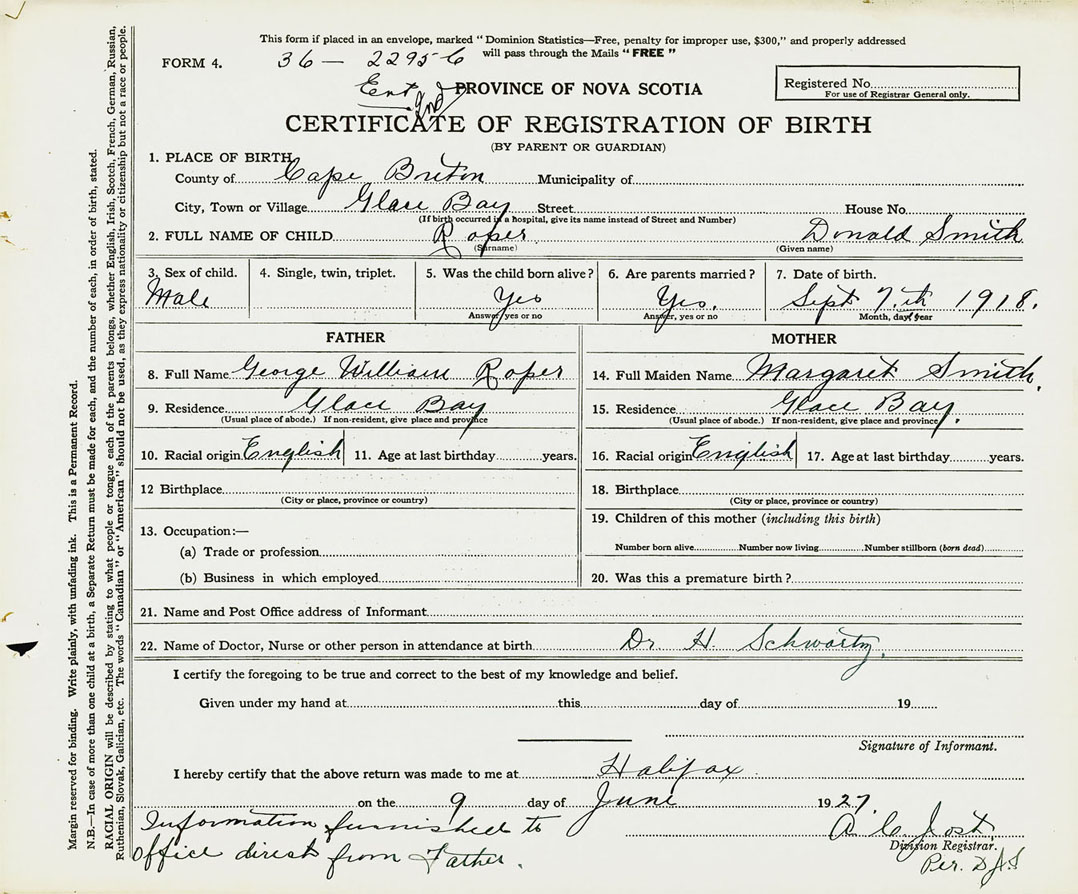 This form if placed in an envelope, marked "Dominion Statistics—Free, penalty for improper use, $300," and properly addressed
will pass through the Mails "FREE"
FORM 4. 36 — 22956
Ent Ind
PROVINCE OF NOVA SCOTIA
Registered No.
For use of Registrar General only.
CERTIFICATE OF REGISTRATION OF BIRTH
(BY PARENT OR GUARDIAN)
1. PLACE OF BIRTH
County of Cape Breton Municipality of
City, Town or Village Glace Bay Street House No.
(If birth occurred in a hospital, give its name instead of Street and Number)
2. FULL NAME OF CHILD Roper Donald Smith
(Surname) (Given name)
3. Sex of child. 4. Single, twin, triplet. 5. Was the child born alive? 6. Are parents married? 7. Date of birth.
Male Yes Yes. Sept 7.th 1918.
Answer, yes or no Answer, yes or no Month, day, year
FATHER MOTHER
8. Full Name George William Roper 14. Full Maiden Name Margaret Smith.
9. Residence Glace Bay 15. Residence Glace Bay.
(Usual place of abode.) If non-resident, give place and province (Usual place of abode.) If non-resident, give place and province
10. Racial origin English 11. Age at last birthday years. 16. Racial origin English 17. Age at last birthday years.
12 Birthplace 18. Birthplace
(City or place, province or country) (City or place, province or country)
13. Occupation:— 19. Children of this mother (including this birth)
(a) Trade or profession Number born alive Number now living Number stillborn (born dead)
(b) Business in which employed 20. Was this a premature birth?
21. Name and Post Office address of Informant
22. Name of Doctor, Nurse or other person in attendance at birth Dr. H. Schwartz.
I certify the foregoing to be true and correct to the best of my knowledge and belief.
Given under my hand at this day of 19
Signature of Informant.
I hereby certify that the above return was made to me at Halifax
on the 9 day of June 1927.
Information furnished to
office direct from Father.
A C Jost.
Division Registrar.
Per. D J S
Margin reserved for binding. Write plainly, with unfading ink. This is a Permanent Record.
N.B.—In case of more than one child at a birth, a Separate Return must be made for each, and the number of each, in order of birth, stated.
RACIAL ORIGIN will be described by stating to what people or tongue each of the parents belongs, whether English, Irish, Scotch, French, German, Russian,
Ruthenian, Slovak, Galician, etc. The words "Canadian" or "American" should not be used, as they express nationality or citizenship but not a race or people.